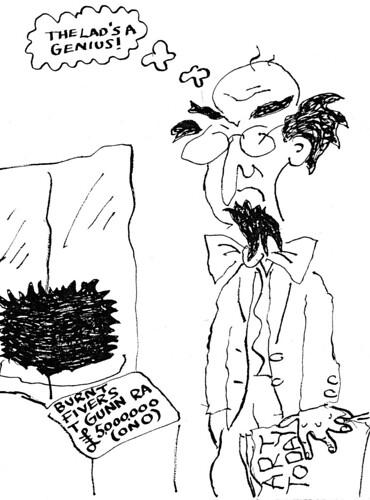 THE LAD'S A
GENIUS!
BURNT
FIVER'S
T. GUNN RA
£ 5,000.000
(ONO)
ART
TODAY